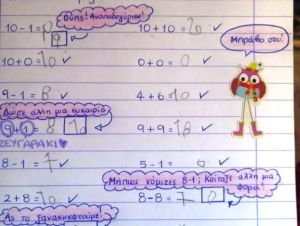 Ουπς! Αναποδογύρισε!
10-1= 9 10+10= 20 ✓
Μπράβο σου!
10+0= 10 ✓ 0+0= 0 ✓
9-1= 8 ✓ 4+6= 10 ✓
Δώσε άλλη μια ευκαιρία
9+1= 8 10 9+9= 18 ✓
ΖΕΥΓΑΡΑΚΙ
8-1= 7 ✓ 5-1= ✓
Μήπως νόμιζες 8-1; Κοίταξε άλλη μια φορά!
2+8= 10 ✓ 8-8= 7 0
Ας το ξανασκεφτούμε.